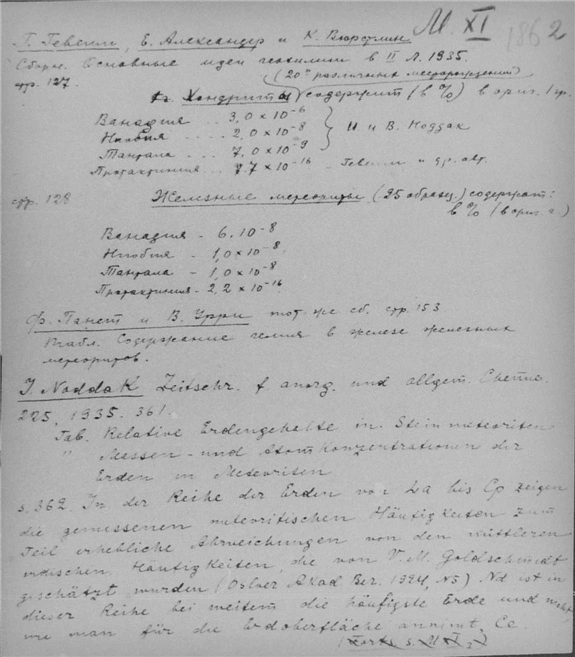 М. XI
1862
Г. Гевеши, Е. Александер и К. Вюрстлин
Сборн. Основные идеи геохимии в. II Л. 1935.
стр. 127. (20 различных месторождений)
Хондриты содержат (в %) в ориг. 1 гр.
Ванадия . . . 3,0 × 10⁻⁶
Ниобия . . . 2,0 × 10⁻⁸ } И и В. Ноддак
Тантала . . . 7,0 × 10⁻⁹
Протактиния . . 7,7 × 10⁻¹⁶ - Гевеши и др. авт.
стр. 128 Железные метеориты (25 образц.) содержат:
в % (в ориг. г.)
Ванадия - 6. 10⁻⁸
Ниобия - 1,0 × 10⁻⁸
Тантала - 1,0 × 10⁻⁸
Протактиния - 2,2 × 10⁻¹⁶
Ф. Панет и В. Урри тот же сб. стр. 153
Табл. Содержание гелия в железе железных
метеоритов.
I. Noddak Zeitschr. f anorg. und allgem. Chemie.
225, 1935. 361
Tab. Relative Erdengehalte in Steinmeteoriten
" Massen- und Atomkonzentrationen der
Erden in Meteoriten
s. 362. In der Reihe der Erden von La bis Cp zeigen
die gemessenen meteoritischen Häufigkeiten zum
Teil erhebliche Abweichungen von den mittleren
irdischen Häufigkeiten, die von V. M. Goldschmidt
geschätzt wurden (Osloer Akad Ber. 1924, N5) Nd ist in
dieser Reihe bei weitem die häufigste Erde und nicht,
wie man für die Erdoberfläche annimt, Ce.
(Forts. s. M